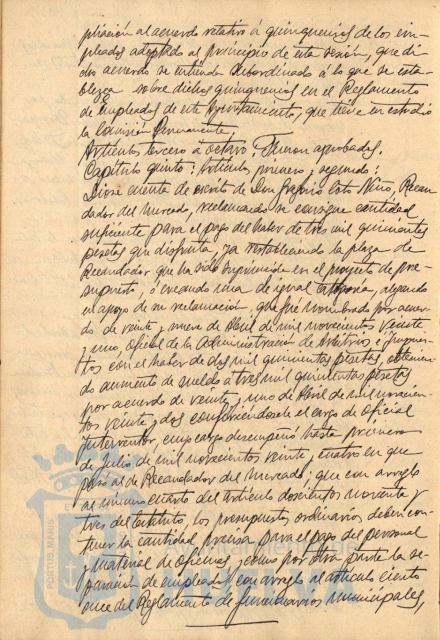 pliación al acuerdo relativo á quinquenios de los em-
pleados adoptado al principio de esta sesión, que di-
cho acuerdo se entienda subordinado á lo que se esta-
blezca sobre dichos quinquenios en el Reglamento
de Empleados de este Ayuntamiento, que tiene en estudio
la Comisión Permanente.
Artículos tercero á octavo: Fueron aprobados.
Capítulo quinto: Artículos primero y segundo:
Diose cuenta de escrito de Don Gregorio Esto Nino, Recau
dador del Mercado, reclamando se consigne cantidad
suficiente para el pago del haber de tres mil quinientas
pesetas que disfruta, ya restableciendo la plaza de
Recaudador que ha sido suprimida en el proyecto de pre-
supuesto, ó creando una de igual categoría, alegando
en apoyo de su reclamación, que fué nombrado por acuer-
do de veinte y nueve de Abril de mil novecientos veinte
y uno, oficial de la Administración de Arbitrios e Impues-
tos con el haber de dos mil quinientas pesetas, obtenien-
do aumento de sueldo a tres mil quinientas pesetas
por acuerdo de veinte y uno de Abril de mil novecien-
tos veinte y dos confiriéndosele el cargo de oficial
Interventor, cuyo cargo desempeñó hasta primero
de Julio de mil novecientos veinte y cuatro en que
pasó al de Recaudador del Mercado; que con arreglo
al número cuarto del artículo doscientos noventa y
tres del Estatuto, los presupuestos ordinarios deben con-
tener la cantidad precisa para el pago del personal
y material de oficinas, y como por otra parte la se-
paración de empleados con arreglo al artículo ciento
once del Reglamento de funcionarios municipales,
PORTUS MARIS